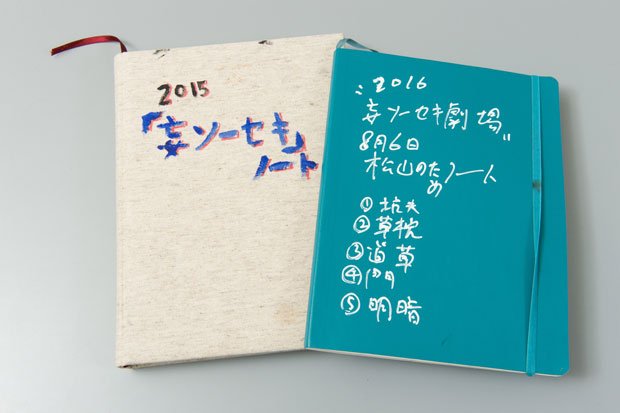 2015
「妄ソーセキ」
ノート
:2016
妄ソーセキ劇場"
8月6日
松山のためノート
①坑夫
②草枕
③道草
④門
⑤明暗